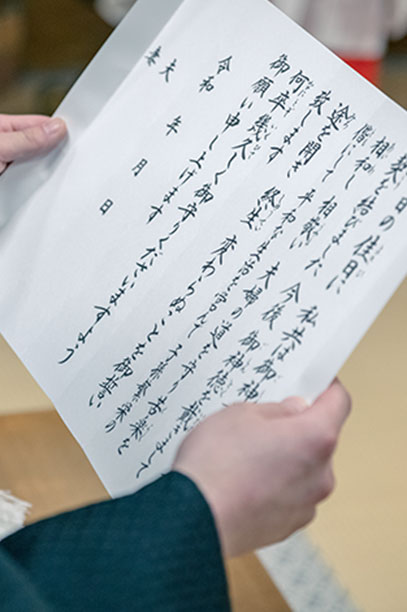 日の佳日に 私共は御神
契を結びました 今後御神徳を戴きまして
相和し 相敬い 夫婦の道を守り 苦楽を
偕にして 平和な生活を営んで 子孫繁栄の
途を開き 終生 変わらぬことを御誓い
致します
何卒幾久しく御守りくださいますよう
御願い申し上げます
令和 年 月 日
夫
妻